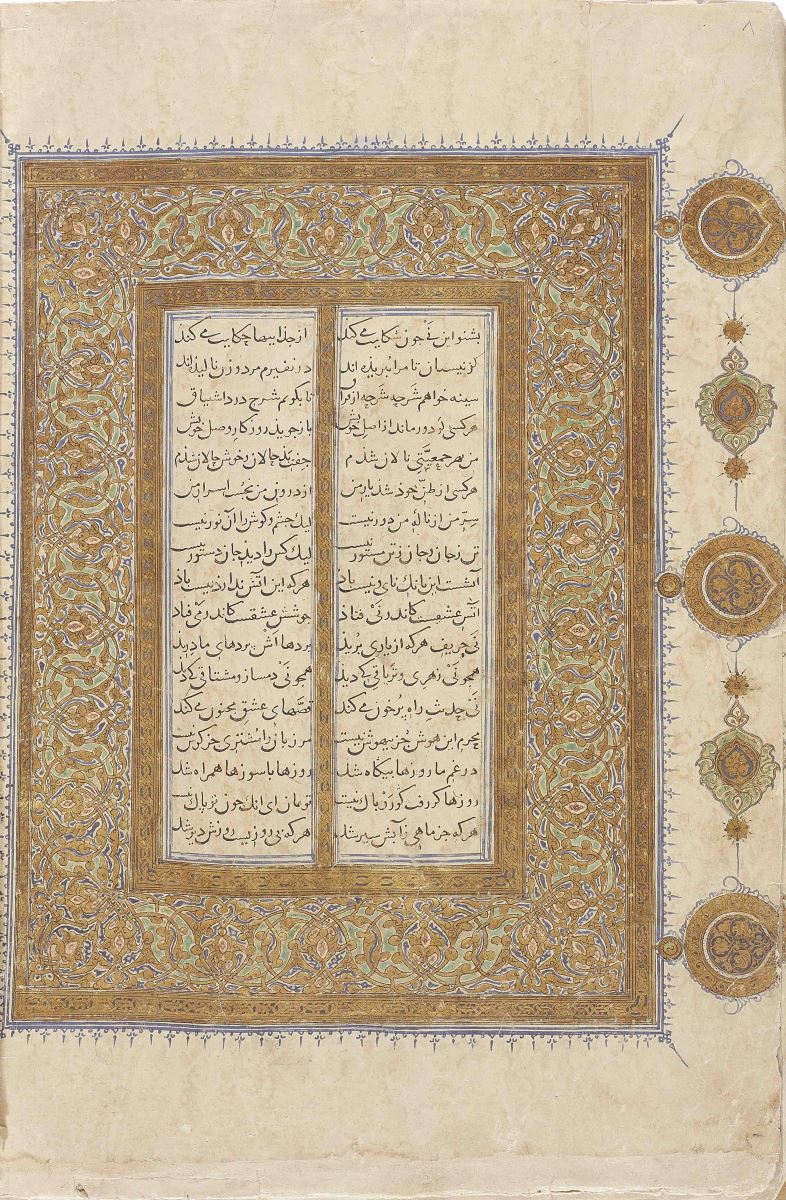 ۸
بشنو این نی جون شکایت می کند از جذاییها حکایت می کند
کز نیستان تا مرا ببریذه اند در نفیرم مرد و زن نالیذه اند
سینه خواهم شرحه شرحه از فراق تا بگویم شرح درد اشتیاق
هر کسی کو دور ماند از اصل خویش باز جویذ روزگار وصل خویش
من بهر جمعیّتی نالان شذم جفت بذحالان و خوش حالان شذم
هر کسی از ظنّ خود شذ یار من از درون من نجست اسرار من
سِرّ من از نالۀ من دور نیست لیک چشم و گوش را آن نور نیست
تن ز جان و جان ز تن مستور نیست لیک کس را دید جان دستور نیست
آتشست این بانک نای و نیست باد هر که این آتش ندارذ نیست باد
آتش عشقست کاندر نی فتاد جوشش عشقست کاندر می فتاد
نی حریف هر که از یاری بریذ پردهااش پردهای ما دریذ
همجو نی زهری و تریاقی که دید همجو نی دمساز و مشتاقی که دید
نی حدیث راه پُرخون می کند قصّهای عشق مجنون می کند
محرم این هوش جز بیهوش نیست مر زبان را مشتری جز گوش نیست
در غم ما روزها بیکاه شد روزها با سوزها همراه شد
روزها گر رفت گو رو باک نیست تو بمان ای آنک جون تو پاک نیست
هر که جز ماهی ز آبش سیر شد هر که بی روزیست روزش دیر شد